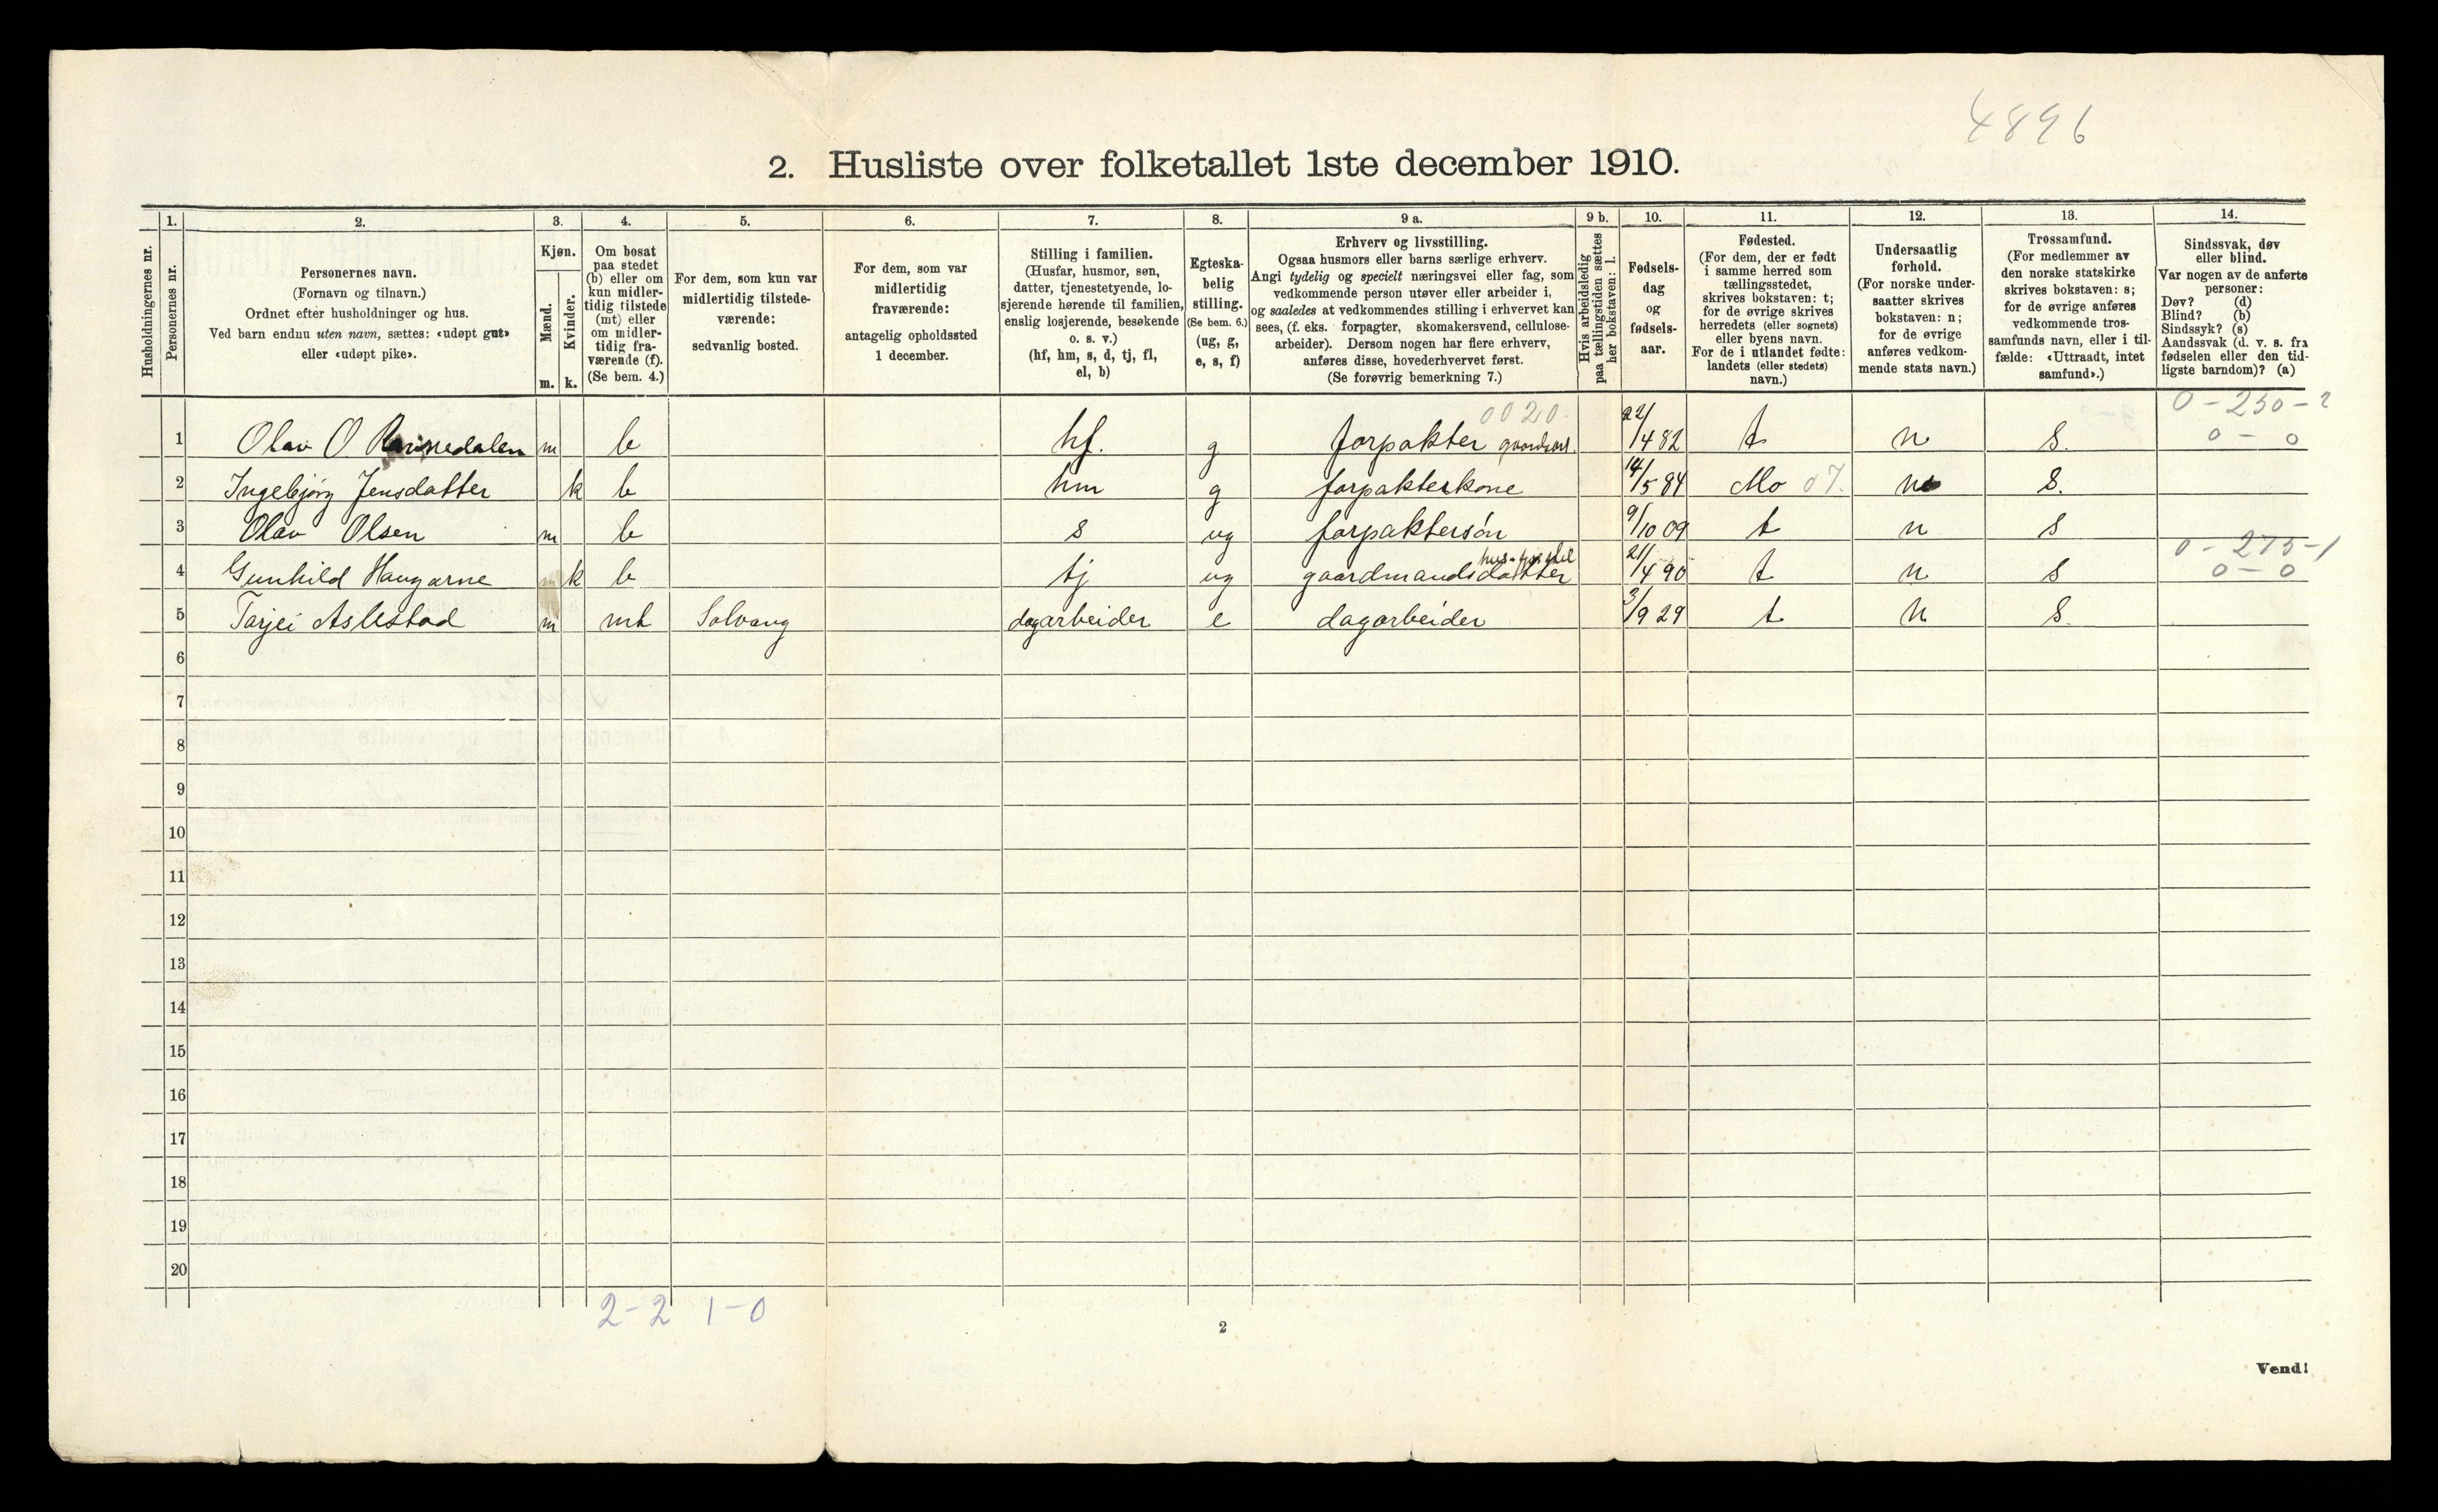 4896
2. Husliste over folketallet 1ste december 1910.
Husholdningernes nr.
1.
Personernes nr.
2.
Personernes navn.
(Fornavn og tilnavn.)
Ordnet efter husholdninger og hus.
Ved barn endnu uten navn, sættes: «udøpt gut»
eller «udøpt pike».
3.
Kjøn.
Mænd.
Kvinder.
m. k.
4.
Om bosat
paa stedet
(b) eller om
kun midler-
tidig tilstede
(mt) eller
om midler-
tidig fra-
værende (f).
(Se bem. 4.)
5.
For dem, som kun var
midlertidig tilstede-
værende:
sedvanlig bosted.
6.
For dem, som var
midlertidig
fraværende:
antagelig opholdssted
1 december.
7.
Stilling i familien.
(Husfar, husmor, søn,
datter, tjenestetyende, lo-
sjerende hørende til familien,
enslig losjerende, besøkende
o. s. v.)
(hf, hm, s, d, tj, fl,
el, b)
8.
Egteska-
belig
stilling.
(Se bem. 6.)
(ug, g,
e, s, f)
9 a.
Erhverv og livsstilling.
Ogsaa husmors eller barns særlige erhverv.
Angi tydelig og specielt næringsvei eller fag, som
vedkommende person utøver eller arbeider i,
og saaledes at vedkommendes stilling i erhvervet kan
sees, (f. eks. forpagter, skomakersvend, cellulose-
arbeider). Dersom nogen har flere erhverv,
anføres disse, hovederhvervet først.
(Se forøvrig bemerkning 7.)
9 b.
Hvis arbeidsledig
paa tællingstiden sættes
her bokstaven: l.
10.
Fødsels-
dag
og
fødsels-
aar.
11.
Fødested.
(For dem, der er født
i samme herred som
tællingsstedet,
skrives bokstaven: t;
for de øvrige skrives
herredets (eller sognets)
eller byens navn.
For de i utlandet fødte:
landets (eller stedets)
navn.)
12.
Undersaatlig
forhold.
(For norske under-
saatter skrives
bokstaven: n;
for de øvrige
anføres vedkom-
mende stats navn.)
13.
Trossamfund.
(For medlemmer av
den norske statskirke
skrives bokstaven: s;
for de øvrige anføres
vedkommende tros-
samfunds navn, eller i til-
fælde: «Uttraadt, intet
samfund».)
14.
Sindssvak, døv
eller blind.
Var nogen av de anførte
personer:
Døv? (d)
Blind? (b)
Sindssyk? (s)
Aandssvak (d. v. s. fra
fødselen eller den tid-
ligste barndom)? (a)
0020 0-230-2
1 Olav O m b hf. g forpakter 22/4 82 t n s. 0-0
2 Ingebjörg Jensdatter k b hm g forpakterkone 14/5 84 Mo 07. n s.
3 Olav Olsen m b s ug forpaktersön 9/10 09 t n s
0-275-1
4 Gunhild Haugarne k b tj ug gaardmandsdatter 21/4 90 t n s 0-0
5 Tarjei Aslestad m mt Solvang dagarbeider e dagarbeider 3/9 29 t n s.
6
7
8
9
10
11
12
13
14
15
16
17
18
19
20
2-2 1-0
2
Vend!